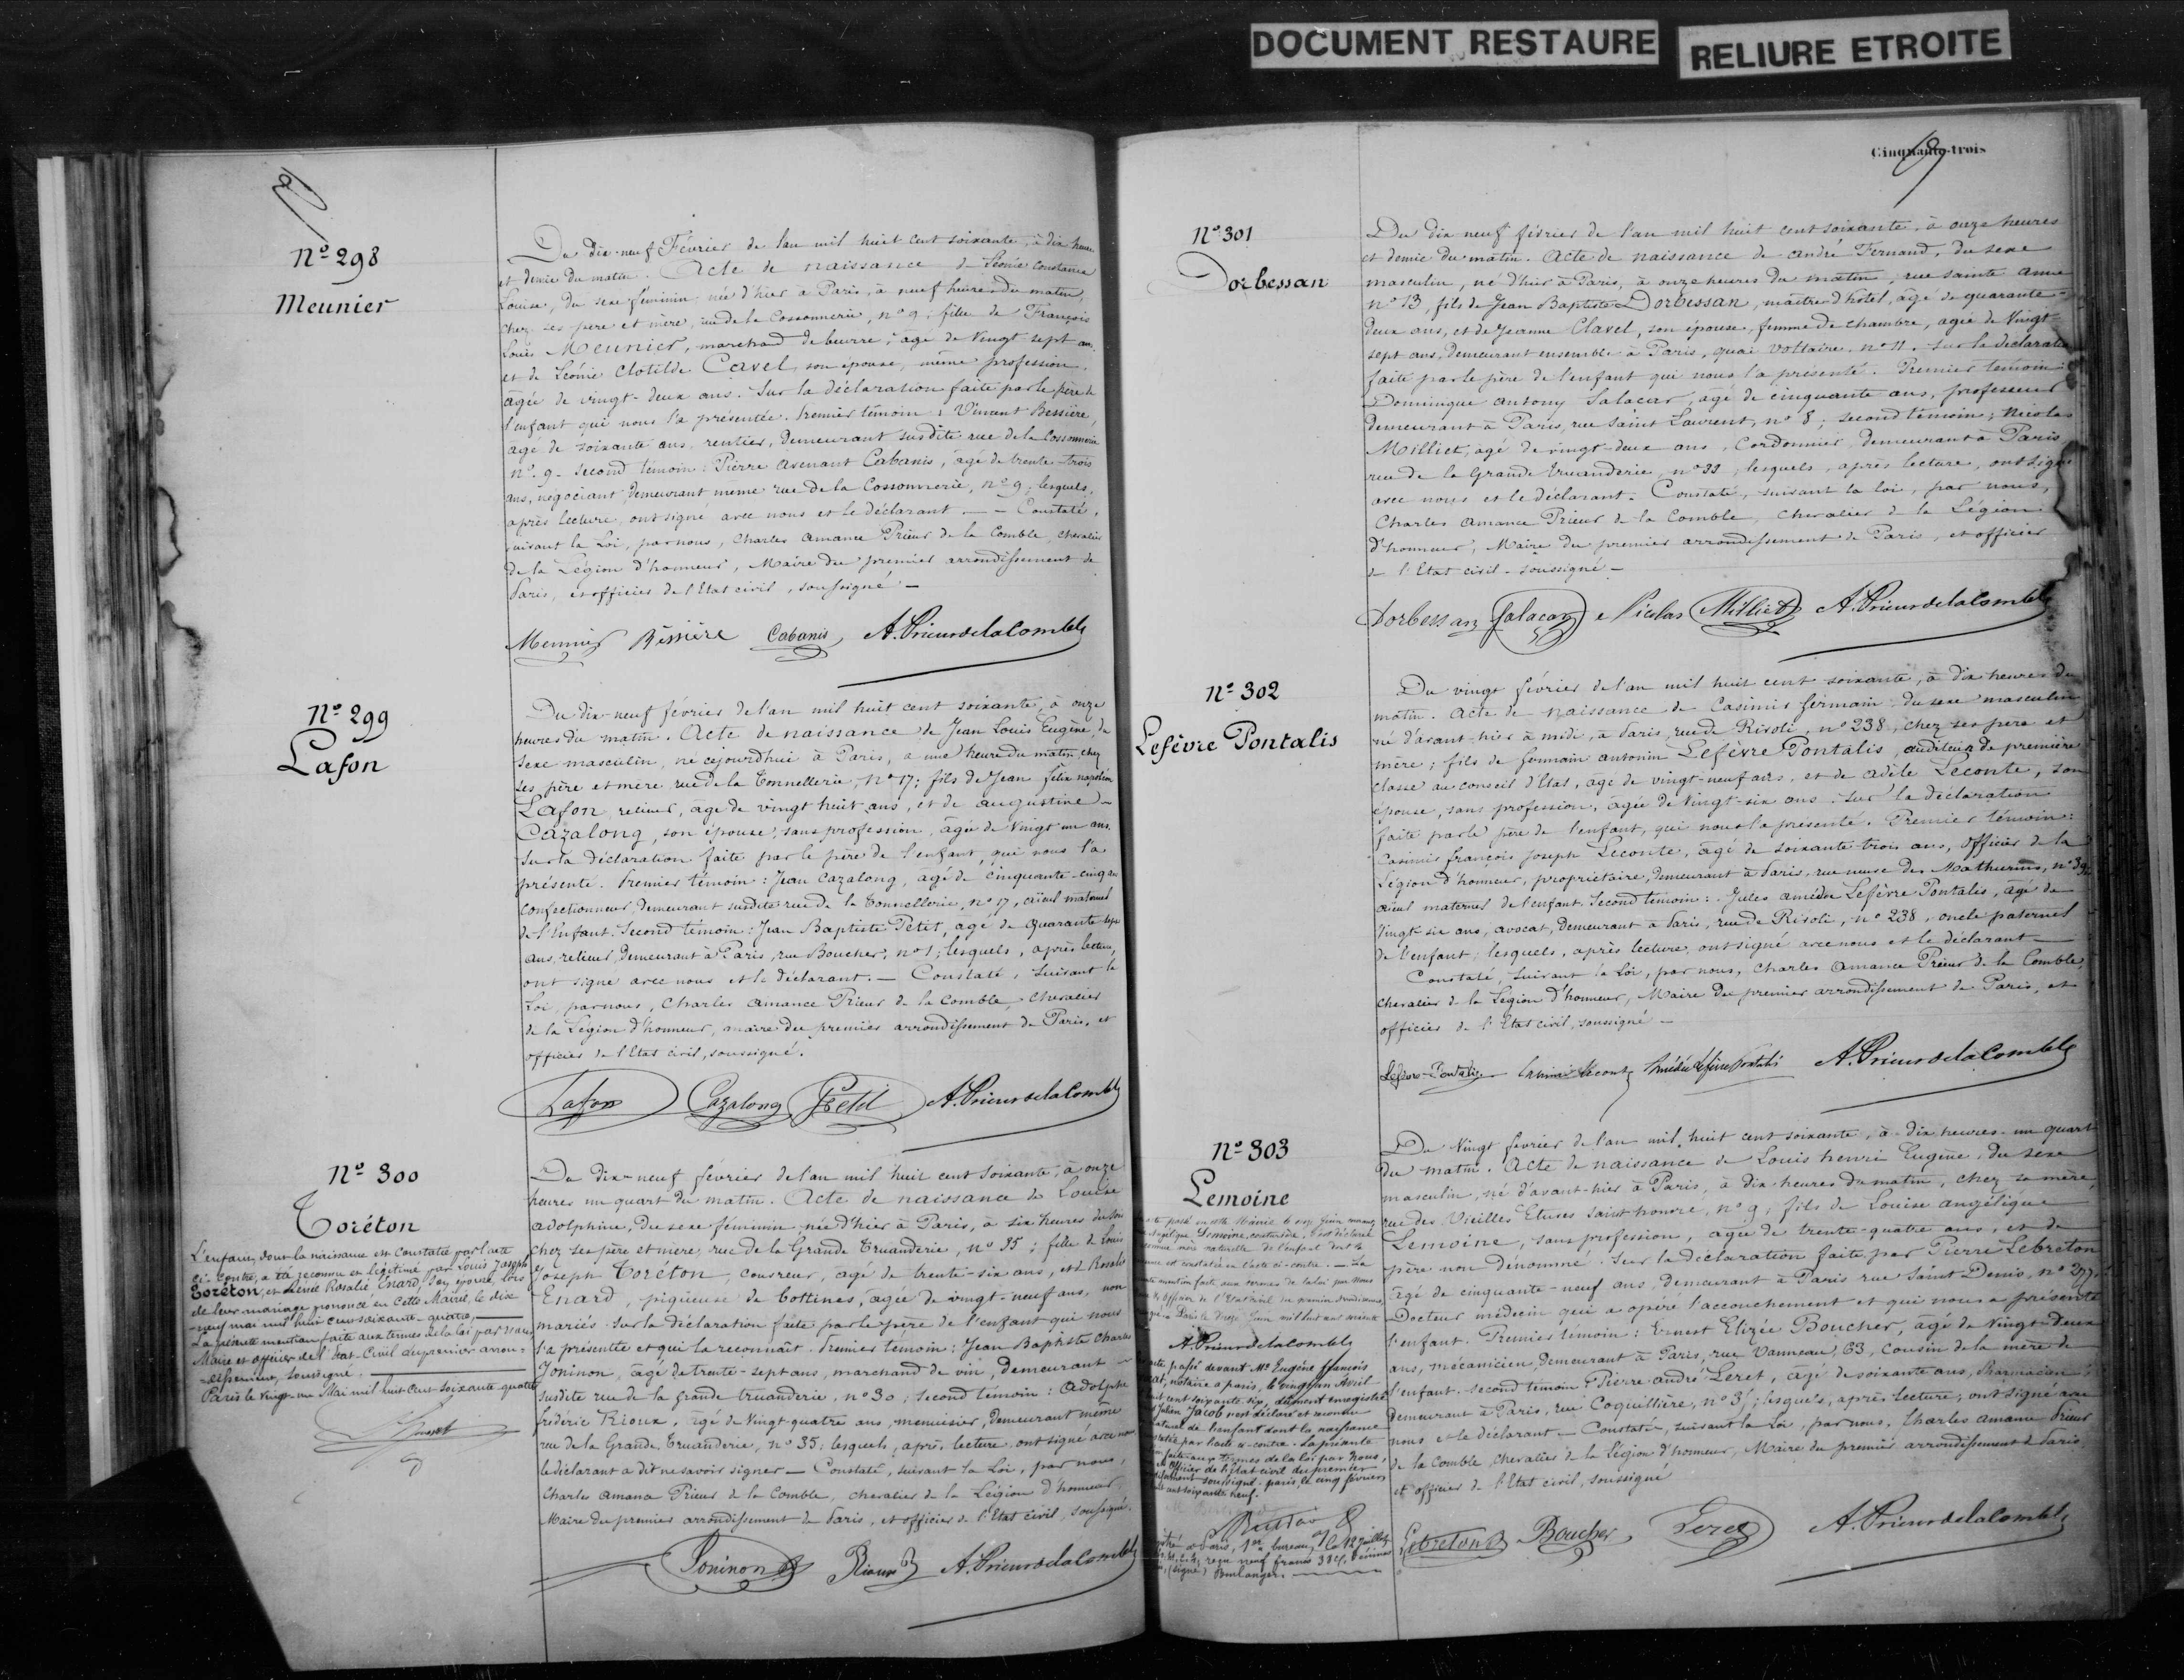 DOCUMENT RESTAURE
RELIURE ETROITE
Nº 298
Meunier
Du dix-neuf Février de l'an mil huit cent soixante, à dix heures
et demie du matin. Acte de naissance de Léonie Constance
Louise, du sexe féminin née d'hier à Paris, à neuf heures du matin,
chez ses père et mère, rue de la Cossonnerie, nº 9; fille de François
Louis Meunier, marchand de beurre, âgé de vingt sept ans,
et de Léonie Clotilde Cavel, son épouse, même profession,
âgée de vingt-deux ans. Sur la déclaration faite par le père de
l'enfant qui nous l'a présentée. Premier témoin: Vincent Bessière,
âgé de soixante ans, rentier, demeurant susdite rue de la Cossonnerie
nº 9. Second témoin: Pierre Avenant Cabanis, âgé de trente-trois
ans, négociant, demeurant même rue de la Cossonnerie, nº 9; lesquels,
après lecture, ont signé avec nous et le déclarant. — Constaté,
suivant la Loi, par nous, Charles Amance Prieur de la Comble, chevalier
de la Légion d'honneur, Maire du premier arrondissement de
Paris, et officier de l'Etat civil, soussigné —
Meunier Bessière Cabanis A. Prieur de la Comble
Nº 299
Lafon
Du dix-neuf février de l'an mil huit cent soixante, à onze
heures du matin. Acte de naissance de Jean Louis Eugène, du
sexe masculin, né cejourdhui à Paris, à une heure du matin, chez
ses père et mère rue de la Tonnellerie, Nº 17; fils de Jean Félix Napoléon
Lafon, relieur, âgé de vingt huit ans, et de Augustine
Cazalong, son épouse, sans profession, âgée de vingt un ans.
Sur la déclaration faite par le père de l'enfant, qui nous l'a
présenté. Premier témoin: Jean Cazalong, âgé de cinquante-cinq ans
confectionneur, demeurant susdite rue de la Tonnellerie, nº 17, aïeul maternel
de l'enfant. Second témoin: Jean Baptiste Petit, âgé de quarante-sept
ans, relieur, demeurant à Paris, rue Boucher, nº 1; lesquels, après lecture,
ont signé avec nous et le déclarant. — Constaté, suivant la
Loi, par nous, Charles Amance Prieur de la Comble, chevalier
de la Légion d'honneur, maire du premier arrondissement de Paris, et
officier de l'Etat civil, soussigné.
Lafon Cazalong Petit A. Prieur de la Comble
Nº 300
Toréton
L'enfant, dont la naissance est constatée par l'acte
ci-contre, a été reconnu et légitimé par Louis Joseph
Toréton, et Rosalie Enard, son épouse, lors
de leur mariage prononcé en cette Mairie, le dix
neuf mai mil huit cent soixante-quatre,
La présente mention faite aux termes de la loi par nous
Maire et officier de l'Etat-Civil du premier arron-
dissement, soussigné.
Paris le vingt un Mai mil huit cent soixante quatre
Du dix-neuf février de l'an mil huit cent soixante, à onze
heures un quart du matin. Acte de naissance de Louise
Adolphine, du sexe féminin née d'hier à Paris, à six heures du soir
chez ses père et mère, rue de la Grande Truanderie, nº 35; fille de Louis
Joseph Toréton, couvreur, âgé de trente-six ans, et de Rosalie
Enard, piqueuse de bottines, âgée de vingt-neuf ans, non
mariés. Sur la déclaration faite par le père de l'enfant qui nous
l'a présentée et qui la reconnaît. Premier témoin: Jean Baptiste Charles
Poninon, âgé de trente-sept ans, marchand de vin, demeurant
susdite rue de la grande truanderie, nº 30; second témoin: Adolphe
frédéric Rioux, âgé de vingt-quatre ans, menuisier, demeurant même
rue de la Grande Truanderie, nº 35; lesquels, après lecture, ont signé avec nous
le déclarant a dit ne savoir signer — Constaté, suivant la Loi, par nous,
Charles Amance Prieur de la Comble, chevalier de la Légion d'honneur,
Maire du premier arrondissement de Paris, et officier de l'Etat civil, soussigné.
Poninon Rioux A. Prieur de la Comble
Cinquante-trois
Nº 301
Dorbessan
Du dix neuf février de l'an mil huit cent soixante, à onze heures
et demie du matin. Acte de naissance de André Fernand, du sexe
masculin, né d'hier à Paris, à onze heures du matin, rue sainte Anne
nº 13, fils de Jean Baptiste Dorbessan, maître d'hôtel, âgé de quarante-
deux ans, et de Jeanne Clavel, son épouse, femme de chambre, âgée de vingt-
sept ans, demeurant ensemble à Paris, quai Voltaire, nº 11. Sur la déclaration
faite par le père de l'enfant qui nous l'a présenté. Premier témoin:
Dominique Antony Salacar, âgé de cinquante ans, professeur
demeurant à Paris, rue Saint Laurent, nº 8; second témoin; Nicolas
Milliet, âgé de vingt-deux ans, Cordonnier, demeurant à Paris,
rue de la Grande Truanderie, nº 33; lesquels, après lecture, ont signé
avec nous et le déclarant. Constaté, suivant la loi, par nous,
Charles Amance Prieur de la Comble, chevalier de la Légion
d'honneur, Maire du premier arrondissement de Paris, et officier
de l'Etat civil soussigné —
Dorbessan Salacar Nicolas Milliet A. Prieur de la Comble
Nº 302
Lefèvre Pontalis
Du vingt février de l'an mil huit cent soixante, à dix heures du
matin. Acte de naissance de Casimir Germain du sexe masculin
né d'avant-hier à midi, à Paris, rue de Rivoli, nº 238, chez ses père et
mère; fils de Germain Antonin Lefèvre Pontalis, auditeur de première
classe au conseil d'Etat, âgé de vingt-neuf ans, et de Adèle Leconte, son
épouse, sans profession, âgée de vingt-six ans. Sur la déclaration
faite par le père de l'enfant, qui nous l'a présenté. Premier témoin:
Casimir françois Joseph Leconte, âgé de soixante-trois ans, officier de la
Légion d'honneur, propriétaire, demeurant à Paris, rue neuve des Mathurins, nº 39
aïeul maternel de l'enfant. Second témoin: Jules Amédée Lefèvre Pontalis, âgé de
vingt-six ans, avocat, demeurant à Paris, rue de Rivoli, nº 238, oncle paternel
de l'enfant; lesquels, après lecture, ont signé avec nous et le déclarant —
Constaté, suivant la Loi, par nous, Charles Amance Prieur de la Comble,
chevalier de la Légion d'honneur, Maire du premier arrondissement de Paris, et
officier de l'Etat civil, soussigné —
Lefèvre-Pontalis Casimir Leconte Amédée Lefèvre Pontalis A. Prieur de la Comble
Nº 303
Lemoine
A. Prieur de la Comble
passé devant Me Eugène françois
notaire a paris, le vingt un Avril
cent soixante six, dument enregistré
Julien Jacob s'est déclaré et reconnu
de l'enfant dont la naissance
par l'acte ci-contre. La présente
faite aux termes de la loi par nous,
officier de l'état civil du premier
soussigné. paris, le cinq février
cent soixante neuf.
à Paris, 1er bureau, le 12 juillet
reçu neuf francs
(signé) Boulanger.
Du vingt février de l'an mil huit cent soixante, à dix heures un quart
du matin. Acte de naissance de Louis henri Eugène, du sexe
masculin, né d'avant-hier à Paris, à dix heures du matin, chez sa mère,
rue des Vieilles Etuves saint honoré, nº 9; fils de Louise angélique
Lemoine, sans profession, âgée de trente-quatre ans, et de
père non dénommé. Sur la déclaration faite par Pierre Lebreton
âgé de cinquante-neuf ans, demeurant à Paris rue Saint Denis, nº 277,
Docteur médecin qui a opéré l'accouchement et qui nous a présenté
l'enfant. Premier témoin: Ernest Elizée Boucher, âgé de vingt-deux
ans, mécanicien, demeurant à Paris, rue Vanneau, 63, cousin de la mère de
l'enfant. second témoin: Pierre andré Leret, âgé de soixante ans, Pharmacien,
demeurant à Paris, rue Coquillière, nº 31; lesquels, après lecture, ont signé avec
nous et le déclarant — Constaté, suivant la Loi, par nous, Charles Amance Prieur
de la Comble, chevalier de la Légion d'honneur, Maire du premier arrondissement de Paris
et officier de l'Etat civil, soussigné
Lebreton Boucher Leret A. Prieur de la Comble